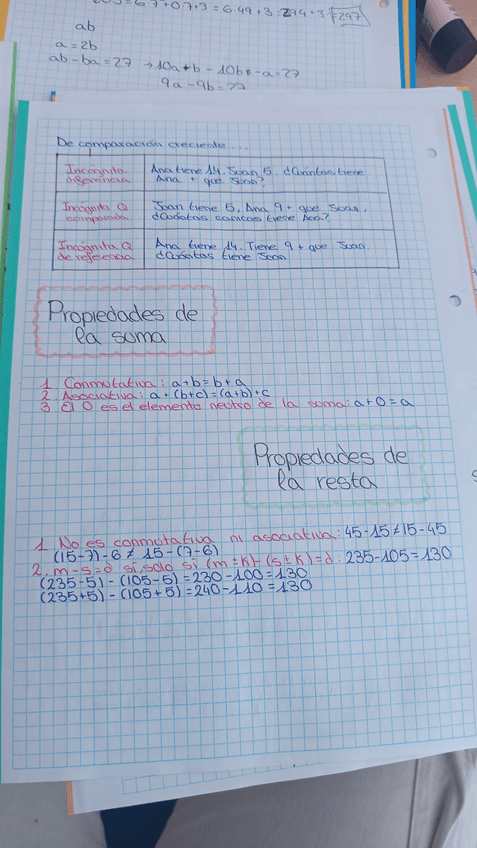 6·7+0,7·3=6·49+3=294+3=297
ab
a=2b
ab-ba=27 →10a+b-10b-a=27
9a-9b=27
De comparación creciente...
Incógnita diferencia
Ana tiene 14. Juan 5. ¿Cuántas tiene
Ana + que Juan?
Incógnita Q comparada
Juan tiene 5, Ana 9 + que Juan.
¿Cuántas canicas tiene Ana?
Incógnita Q de referencia
Ana tiene 14. Tiene 9 + que Juan
¿Cuántas tiene Juan
Propiedades de
la suma
1 Conmutativa: a+b=b+a
2 Asociativa: a+(b+c)=(a+b)+c
3 El 0 es el elemento neutro de la suma: a+0=a
Propiedades de
la resta
1 No es conmutativa ni asociativa: 45-15≠15-45
(15-7)-6≠15-(7-6)
2. m-s=d si, solo si (m±k)-(s±k)=d: 235-105=130
(235-5)-(105-5)=230-100=130
(235+5)-(105+5)=240-110=130